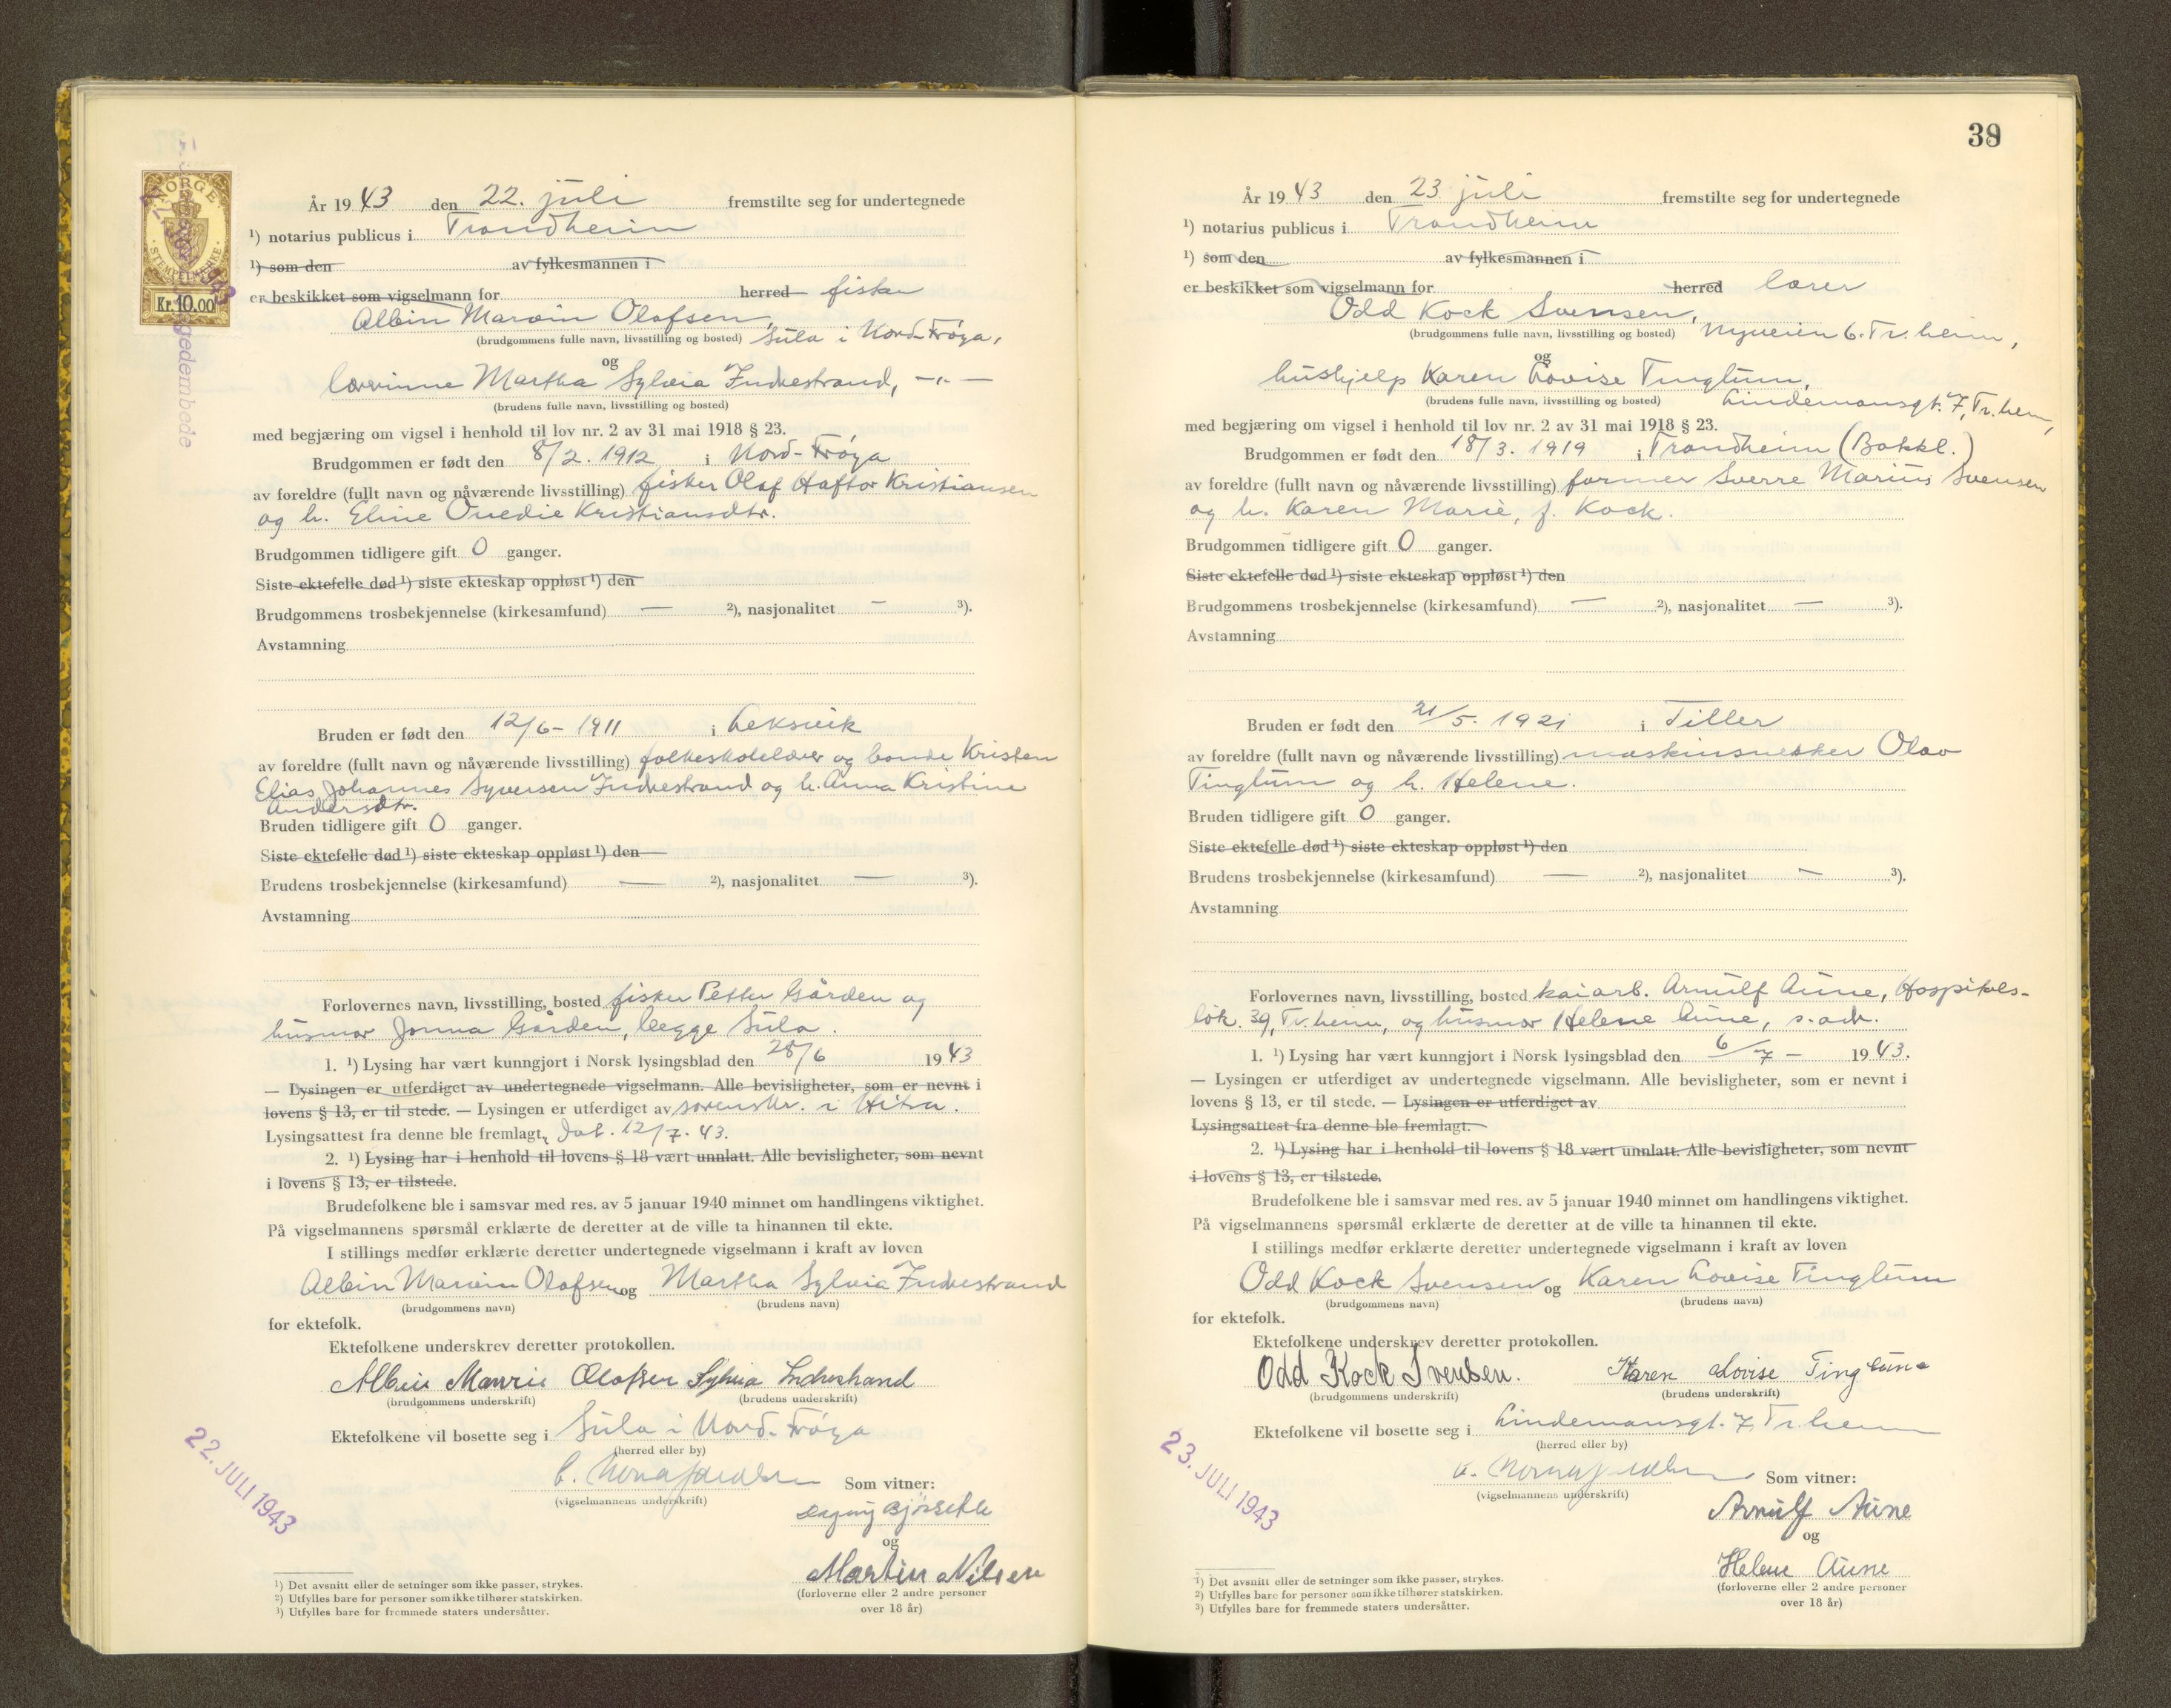 NORGE
STEMPELMERKE
Kr. 10.00
År 1943 den 22. juli fremstilte seg for undertegnede
¹) notarius publicus i Trondheim
¹) som den av fylkesmannen i
er beskikket som vigselmann for herred fisker
Albin Marvin Olafsen,
(brudgommens fulle navn, livsstilling og bosted) Sula i Nord-Frøya,
og
lærerinne Martha Sylvia Indrestrand, -"-
(brudens fulle navn, livsstilling og bosted)
med begjæring om vigsel i henhold til lov nr. 2 av 31 mai 1918 § 23.
Brudgommen er født den 8/2. 1912 i Nord-Frøya
av foreldre (fullt navn og nåværende livsstilling) fisker Olaf Haftor Kristiansen
og h. Eline Ovedie Kristiansdtr.
Brudgommen tidligere gift 0 ganger.
Siste ektefelle død ¹) siste ekteskap oppløst ¹) den
Brudgommens trosbekjennelse (kirkesamfund) — ²), nasjonalitet — ³).
Avstamning
Bruden er født den 12/6- 1911 i Leksvik
av foreldre (fullt navn og nåværende livsstilling) folkeskolelærer og bonde Kristen
Elias Johannes Syversen Indrestrand og h. Anna Kristine
Andersdtr.
Bruden tidligere gift 0 ganger.
Siste ektefelle død ¹) siste ekteskap oppløst ¹) den
Brudens trosbekjennelse (kirkesamfund) — ²), nasjonalitet — ³).
Avstamning
Forlovernes navn, livsstilling, bosted fisker Petter Gården og
husmor Jonna Gården, begge Sula.
1. ¹) Lysing har vært kunngjort i Norsk lysingsblad den 28/6 1943
— Lysingen er utferdiget av undertegnede vigselmann. Alle bevisligheter, som er nevnt i
lovens § 13, er til stede. — Lysingen er utferdiget av sorenskr. i Hitra.
Lysingsattest fra denne ble fremlagt, dat. 12/7. 43.
2. ¹) Lysing har i henhold til lovens § 18 vært unnlatt. Alle bevisligheter, som nevnt
i lovens § 13, er tilstede.
Brudefolkene ble i samsvar med res. av 5 januar 1940 minnet om handlingens viktighet.
På vigselmannens spørsmål erklærte de deretter at de ville ta hinannen til ekte.
I stillings medfør erklærte deretter undertegnede vigselmann i kraft av loven
Albin Marvin Olafsen og Martha Sylvia Indrestrand
(brudgommens navn) (brudens navn)
for ektefolk.
Ektefolkene underskrev deretter protokollen.
Albin Marvin Olafsen Sylvia Indrestrand
(brudgommens underskrift) (brudens underskrift)
Ektefolkene vil bosette seg i Sula i Nord-Frøya
(herred eller by)
Som vitner:
(vigselmannens underskrift)
22. JULI 1943
og
Martin Nilsen
(forloverne eller 2 andre personer
over 18 år)
¹) Det avsnitt eller de setninger som ikke passer, strykes.
²) Utfylles bare for personer som ikke tilhører statskirken.
³) Utfylles bare for fremmede staters undersåtter.
39
År 1943 den 23 juli fremstilte seg for undertegnede
¹) notarius publicus i Trondheim
¹) som den av fylkesmannen i
er beskikket som vigselmann for herred lærer
Odd Kock Svensen,
(brudgommens fulle navn, livsstilling og bosted) Nyveien 6. Tr.heim,
og
hushjelp Karen Lovise Tinglum,
(brudens fulle navn, livsstilling og bosted) Lindemansgt. 7, Tr.heim,
med begjæring om vigsel i henhold til lov nr. 2 av 31 mai 1918 § 23.
Brudgommen er født den 18/3. 1919 i Trondheim (Bakkl.)
av foreldre (fullt navn og nåværende livsstilling) former Sverre Marius Svensen
og h. Karen Marie, f. Kock.
Brudgommen tidligere gift 0 ganger.
Siste ektefelle død ¹) siste ekteskap oppløst ¹) den
Brudgommens trosbekjennelse (kirkesamfund) — ²), nasjonalitet — ³).
Avstamning
Bruden er født den 21/5. 1921 i Tiller
av foreldre (fullt navn og nåværende livsstilling) maskinsnekker Olav
Tinglum og h. Helene.
Bruden tidligere gift 0 ganger.
Siste ektefelle død ¹) siste ekteskap oppløst ¹) den
Brudens trosbekjennelse (kirkesamfund) — ²), nasjonalitet — ³).
Avstamning
Forlovernes navn, livsstilling, bosted kaiarb. Arnulf Aune, Hospitals-
løk. 39, Tr.heim, og husmor Helene Aune, s. adr.
1. ¹) Lysing har vært kunngjort i Norsk lysingsblad den 6/7 - 1943.
— Lysingen er utferdiget av undertegnede vigselmann. Alle bevisligheter, som er nevnt i
lovens § 13, er til stede. — Lysingen er utferdiget av
Lysingsattest fra denne ble fremlagt.
2. ¹) Lysing har i henhold til lovens § 18 vært unnlatt. Alle bevisligheter, som nevnt
i lovens § 13, er tilstede.
Brudefolkene ble i samsvar med res. av 5 januar 1940 minnet om handlingens viktighet.
På vigselmannens spørsmål erklærte de deretter at de ville ta hinannen til ekte.
I stillings medfør erklærte deretter undertegnede vigselmann i kraft av loven
Odd Kock Svensen og Karen Lovise Tinglum
(brudgommens navn) (brudens navn)
for ektefolk.
Ektefolkene underskrev deretter protokollen.
Odd Kock Svensen. Karen Lovise Tinglum
(brudgommens underskrift) (brudens underskrift)
Ektefolkene vil bosette seg i Lindemansgt. 7, Tr.heim
(herred eller by)
Som vitner:
(vigselmannens underskrift)
23. JULI 1943
Arnulf Aune
og
Helene Aune
(forloverne eller 2 andre personer
over 18 år)
¹) Det avsnitt eller de setninger som ikke passer, strykes.
²) Utfylles bare for personer som ikke tilhører statskirken.
³) Utfylles bare for fremmede staters undersåtter.